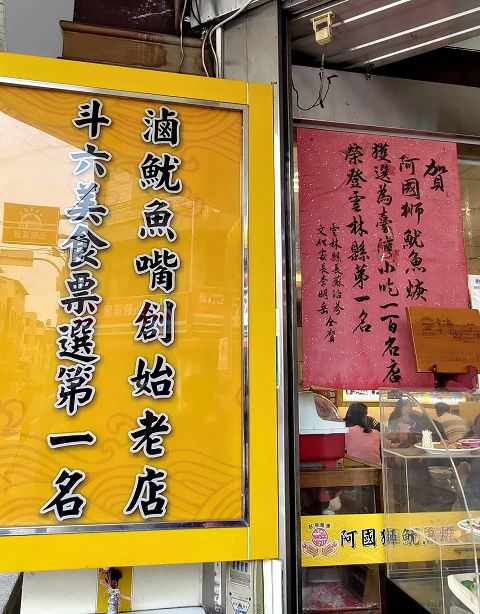 滷魷魚嘴創始老店
斗六美食票選第一名
賀
阿國獅魷魚焿
獲選為臺灣小吃一百名店
榮登雲林縣第一名
雲林縣長蘇治芬
文化處長李明岳 仝賀
阿國獅魷魚焿